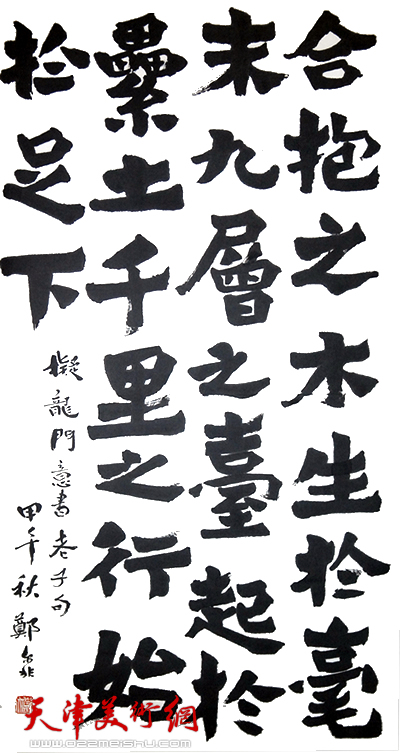 合抱之木生於毫
末九層之臺起於
纍土千里之行始
於足下
擬龍門意書老子句
甲午秋鄭
天津美術網
www.022meishu.com